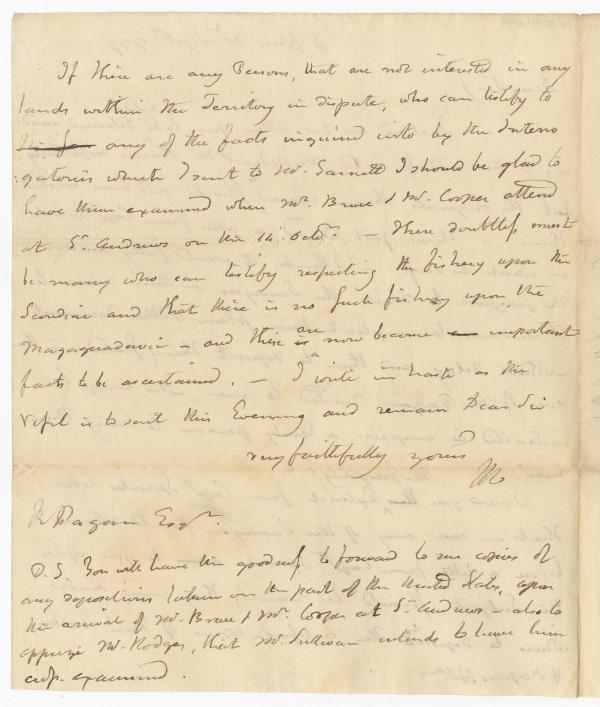 If there are any Persons, that are not interested in any
lands within the Territory in dispute, who can testify to
any of the facts inquired into by the Interro
:gatories which I sent to Mr. Garnett I should be glad to
have them examined when Mr. Bruce & Mr. Cooper attend
at St. Andrews on the 14. Octr. — There doubtless must
be many who can testify respecting the fishery upon the
Scoudiac and that there is no such fishery upon the
Magaguadavic — and these are now become important
facts to be ascertained. — I write in haste as the
Vessel is to sail this Evening and remain Dear Sir
very faithfully yours
R Pagan Esqr.
P.S. You will have the goodness to forward to me copies of
any depositions taken on the part of the United States, upon
the arrival of Mr. Bruce & Mr. Cooper at St. Andrews — also to
apprize Mr. Hodges, that Mr. Sullivan intends to have him
examined.